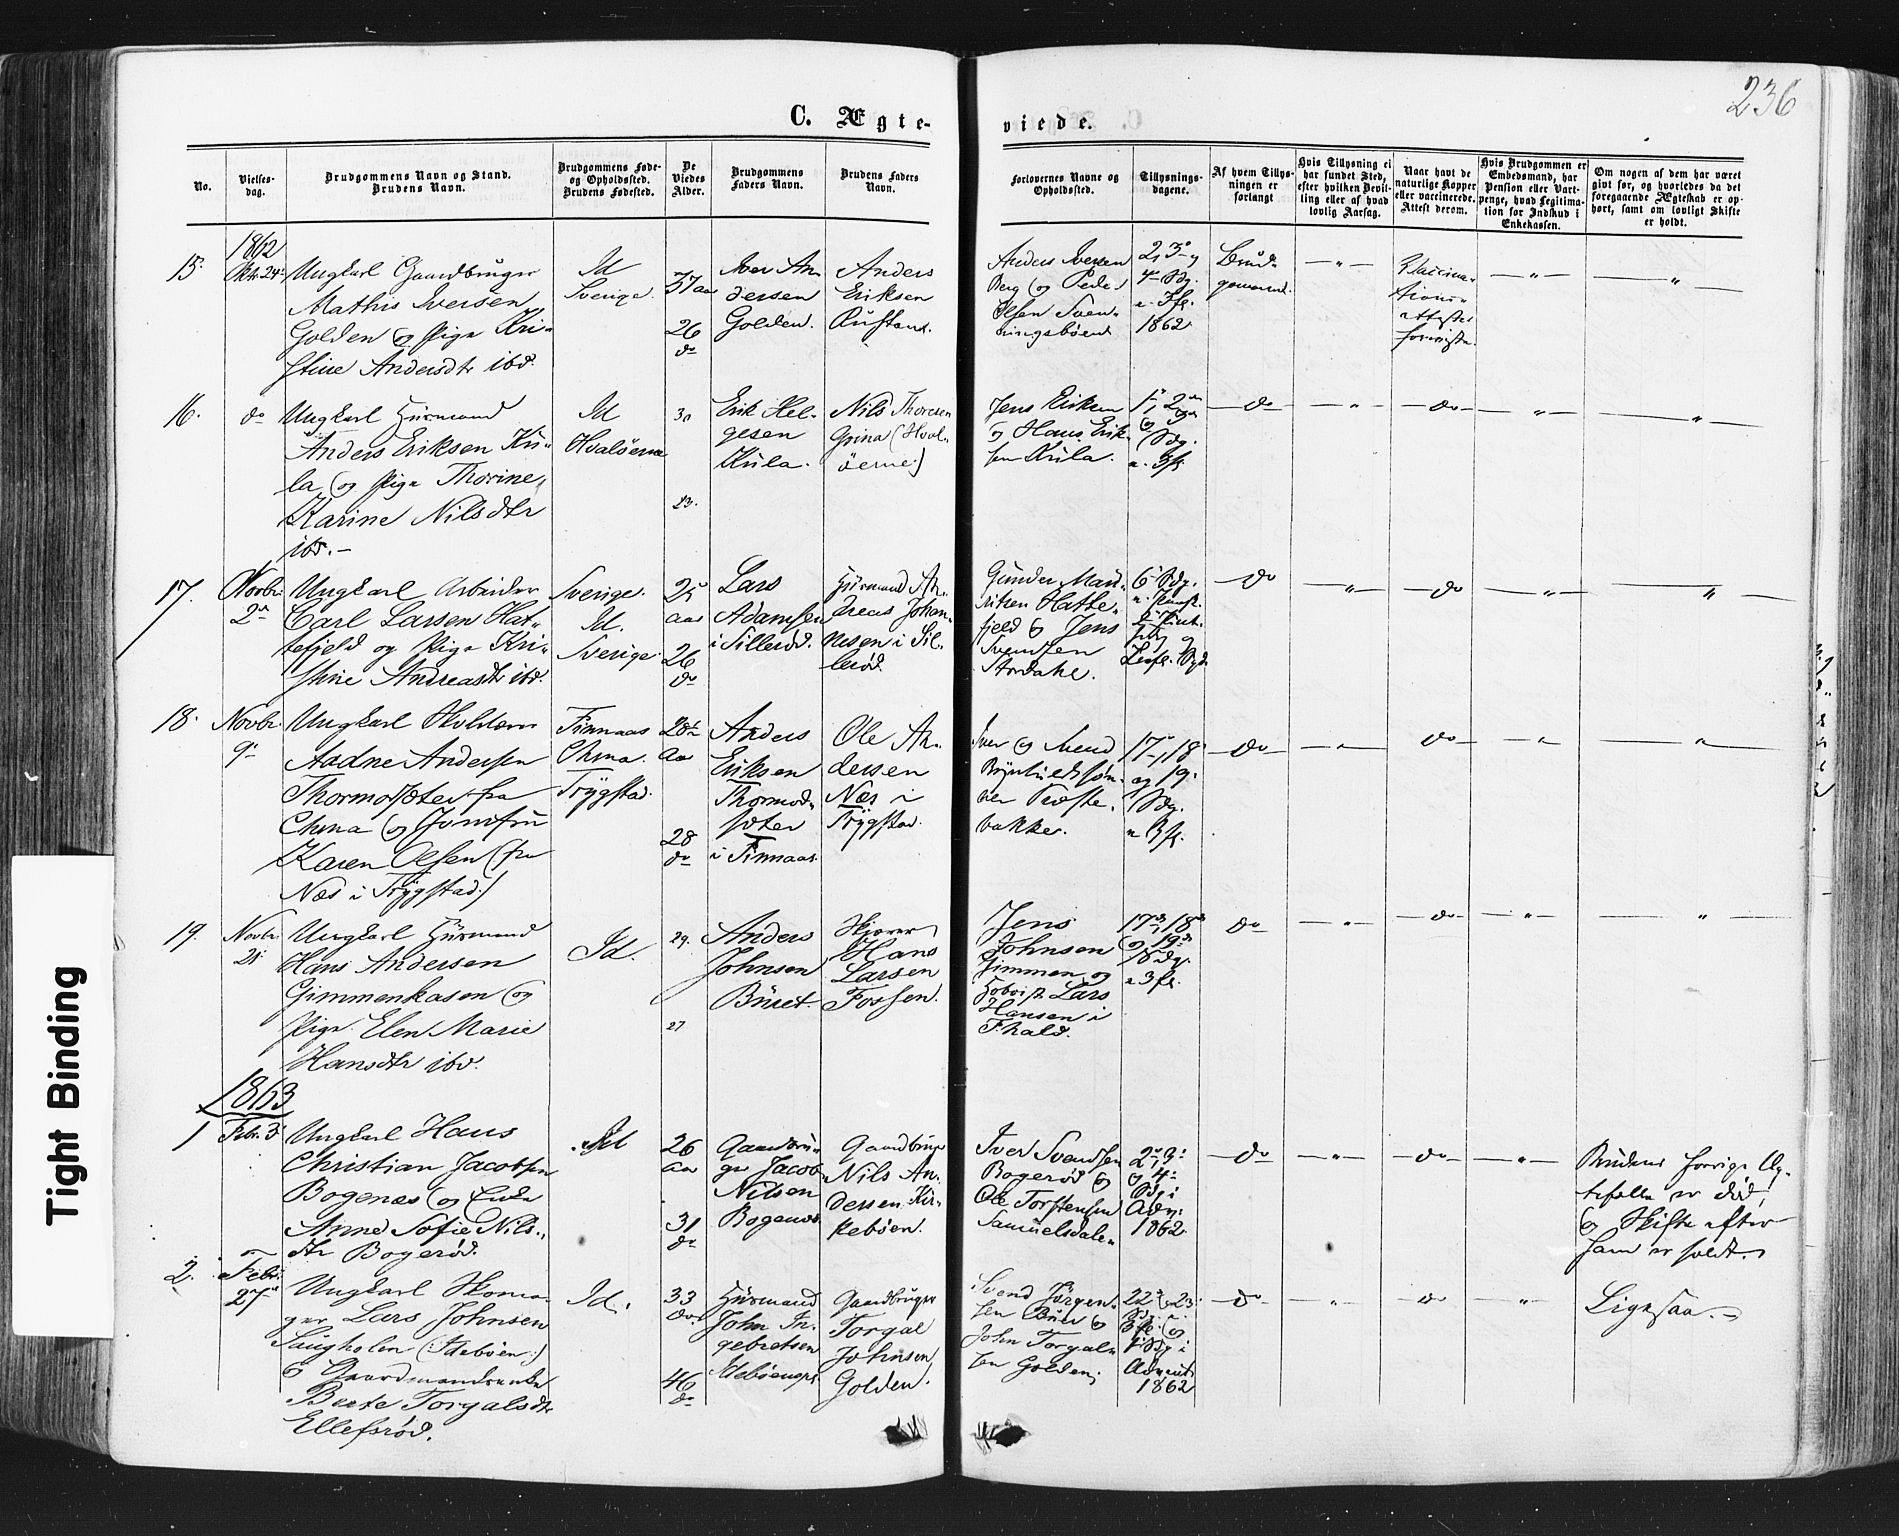 236
C. Ægte-
viede.
No.
Vielses-
dag.
Brudgommens Navn og Stand.
Brudens Navn.
Brudgommens Føde-
og Opholdssted.
Brudens Fødested.
De
Viedes
Alder.
Brudgommens
Faders Navn.
Brudens Faders
Navn.
Forlovernes Navne og
Opholdssted.
Tillysnings-
dagene.
Af hvem Tillys-
ningen er
forlangt
Hvis Tillysning ei
har fundet Sted,
efter hvilken Bevil-
ling eller af hvad
lovlig Aarsag.
Naar havt de
naturlige Kopper
eller vaccinerede.
Attest derom.
Hvis Brudgommen er
Embedsmand, har
Pension eller Vart-
penge, hvad Legitima-
tion for Indskud i
Enkekassen.
Om nogen af dem har været
givt før, og hvorledes da det
foregaaende Ægteskab er op-
hørt, samt om lovligt Skifte
er holdt.
1862
15.
Oktr. 24
Ungkarl Gaardbruger
Mathis Iversen
Golden og Pige Kri-
stine Andersdtr ibd.
Id
Sverige.
37 aar
26
do
Iver An-
dersen
Golden.
Anders
Eriksen
Rustand.
Anders Iversen
Berg og Peder
Olsen Sven-
ningsbøen
2, 3 og
4 Sdg.
e. Tfl.
1862.
Brud-
gommen.
— " —
Vaccina-
tions-
attester
foreviste.
— " —
— " —
16.
do
Ungkarl Husmand
Anders Eriksen Ku-
la og Pige Thorine
Karine Nilsdtr
ibd. —
Id
Hvaløerne
30
23.
Erik Hel-
gesen
Kula.
Nils Thoresen
Grina (Hval-
øerne)
Jens Eriksen
og Hans Erik-
sen Kula.
— do —
"
— do —
— " —
— " —
17.
Novbr.
2
Ungkarl Arbeider
Carl Larsen Hat-
tefjeld og Pige Kri-
stine Andreasdtr ibd.
Sverige.
Id.
Sverige.
25
aar
26
do
Lars
Adamsen
i Sillerød.
Husmand An-
dreas Johan-
nesen i Sil-
lerød.
Gunder Maur-
ritsen Hatte-
fjeld og Jens
Svendsen
Stordahl.
— do
— " —
— do
— " —
— " —
18.
Novbr.
9
Ungkarl
Aadne Andersen
Thormodsæter fra
China og Jomfru
Karen Olsen (fra
Næs i Trygstad.)
Finnaas
China.
Trygstad.
28
aar
28
do
Anders
Eriksen
Thormod-
sæter
i Finnaas.
Ole An-
dersen
Næs i
Trygstad.
Iver og Svend
Brynhildssøn-
ner Træste-
bakke.
17, 18
og 19
Sdg.
e. Tfl.
— do —
— " —
do
— " —
— " —
19.
Novbr.
21
Ungkarl Husmand
Hans Andersen
Gimmenkasen og
Pige Elen Marie
Hansdtr ibd.
Id.
29.
27
Anders
Johnsen
Buret.
Skjærer
Hans
Larsen
Fossen.
Jens
Johnsen
Gimmen og
Lars
Hansen i
F.hald.
17, 18
og 19
Sdg.
e. Tfl.
do
— " —
— do —
— " —
— " —
1863
1
Febr. 3
Ungkarl Hans
Christian Jacobsen
Bogenæs og Enke
Anne Sofie Nils-
dtr Bogerød.
Id
26
aar
31
do
Gaardbru-
ger Jacob
Nilsen
Bogenæs
Gaardbruger
Nils An-
dersen Kir-
kebøen.
Iver Svendsen
Bogerød og
Ole Torstensen
Samuelsdalen
2, 3
og 4
Sdg. i
Adv.
1862.
— do —
— " —
— do —
— " —
Brudens forrige Æg-
tefælle er død,
og Skifte efter
ham er holdt.
2.
Febr.
27
Ungkarl Skoma-
ger Lars Johnsen
Laugholen (Idebøen)
og Gaardmandsenke
Berte Torgalsdtr
Ellefsrød.
Id.
33
do
46
do
Husmand
John In-
gebretsen
Idebøenspl.
Gaardbruger
Torgal
Johnsen
Golden.
Svend Jørgen-
sen Buer og
John Torgal-
sen Golden.
22 og 23
Sdg. e.
Tfl. og
1 Sdg i
Advent
1862
— do —
— " —
— do —
— " —
Ligesaa. —
Tight Binding